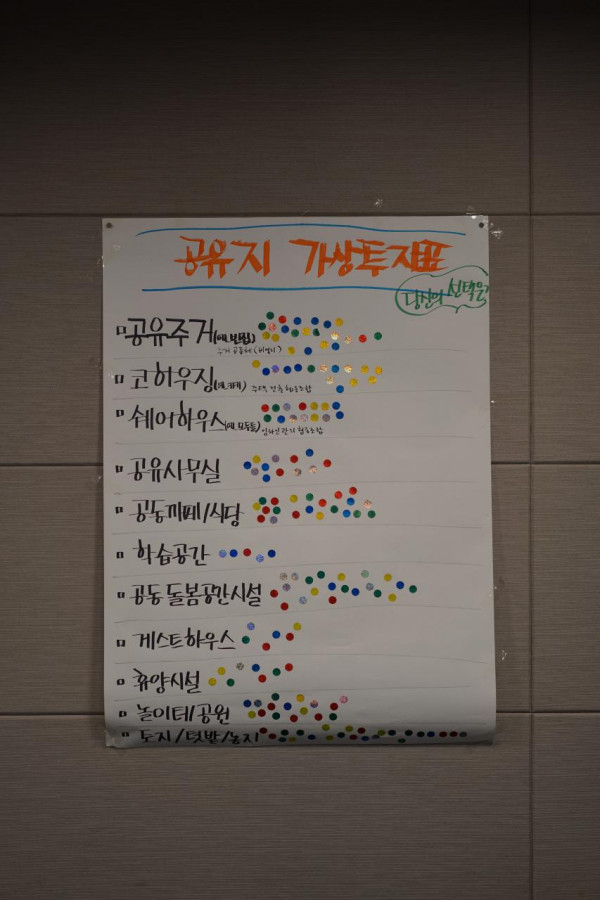 공유지 가상투표
당신의 선택은?
공유주거
주거 공동체
코하우징
주택 건축 협동조합
쉐어하우스(예. 모두들)
공유사무실
공동까페/식당
학습공간
공동 돌봄공간시설
게스트하우스
휴양시설
놀이터/공원
토지/텃밭/농지